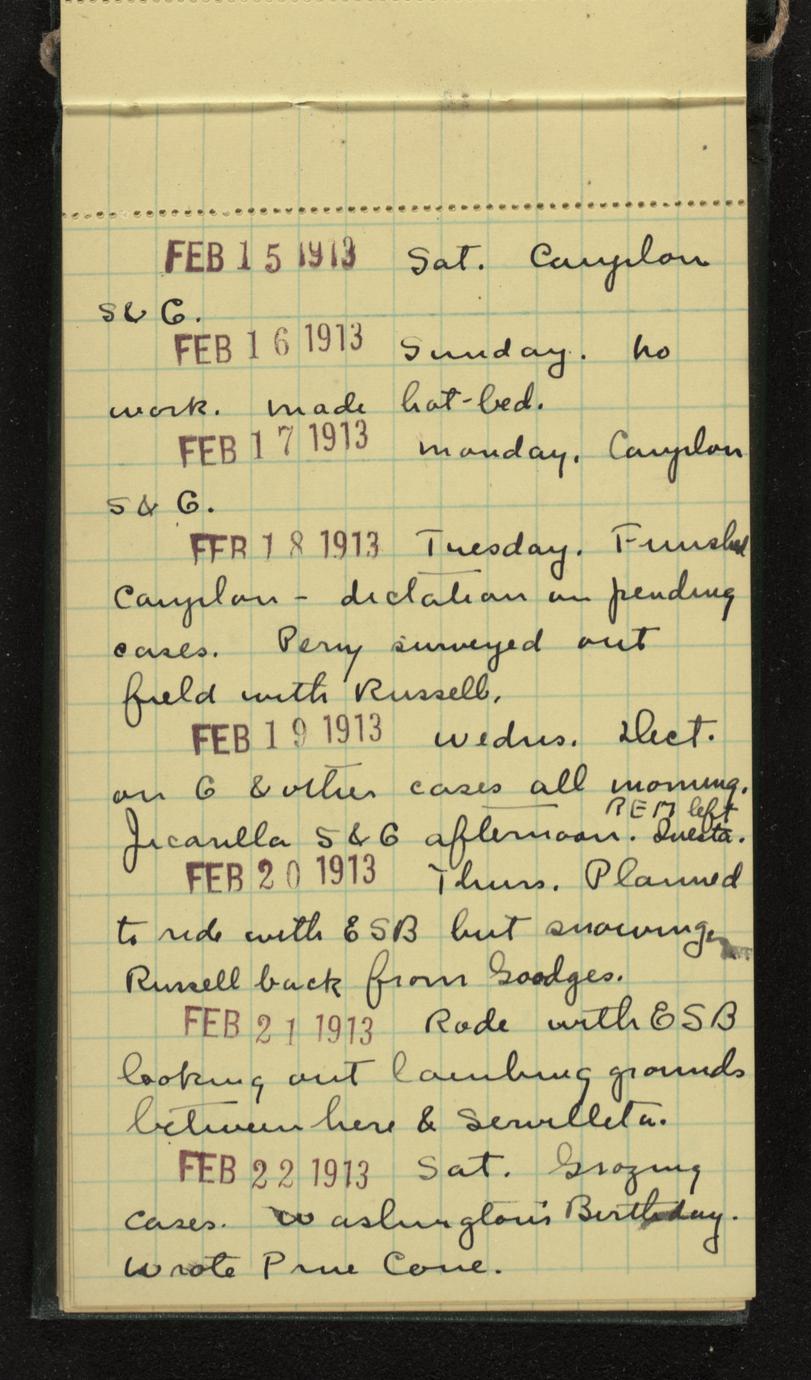 FEB 15 1913 Sat. Canjilon
S & G.
FEB 16 1913 Sunday. No
work. made hot-bed.
FEB 17 1913 Monday. Canjilon
S & G.
FEB 18 1913 Tuesday. Finished
Canjilon - dictation on pending
cases. Perry surveyed out
field with Russell.
FEB 19 1913 Wednes. Dict.
on G & other cases all morning.
REM left
Jicarilla S & G afternoon. Questa.
FEB 20 1913 Thurs. Planned
to ride with ESB but snowing.
Russell back from Goodges.
FEB 21 1913 Rode with ESB
looking out lambing grounds
between here & Servilleta.
FEB 22 1913 Sat. Grazing
cases. Washington's Birthday.
Wrote Pine Cone.